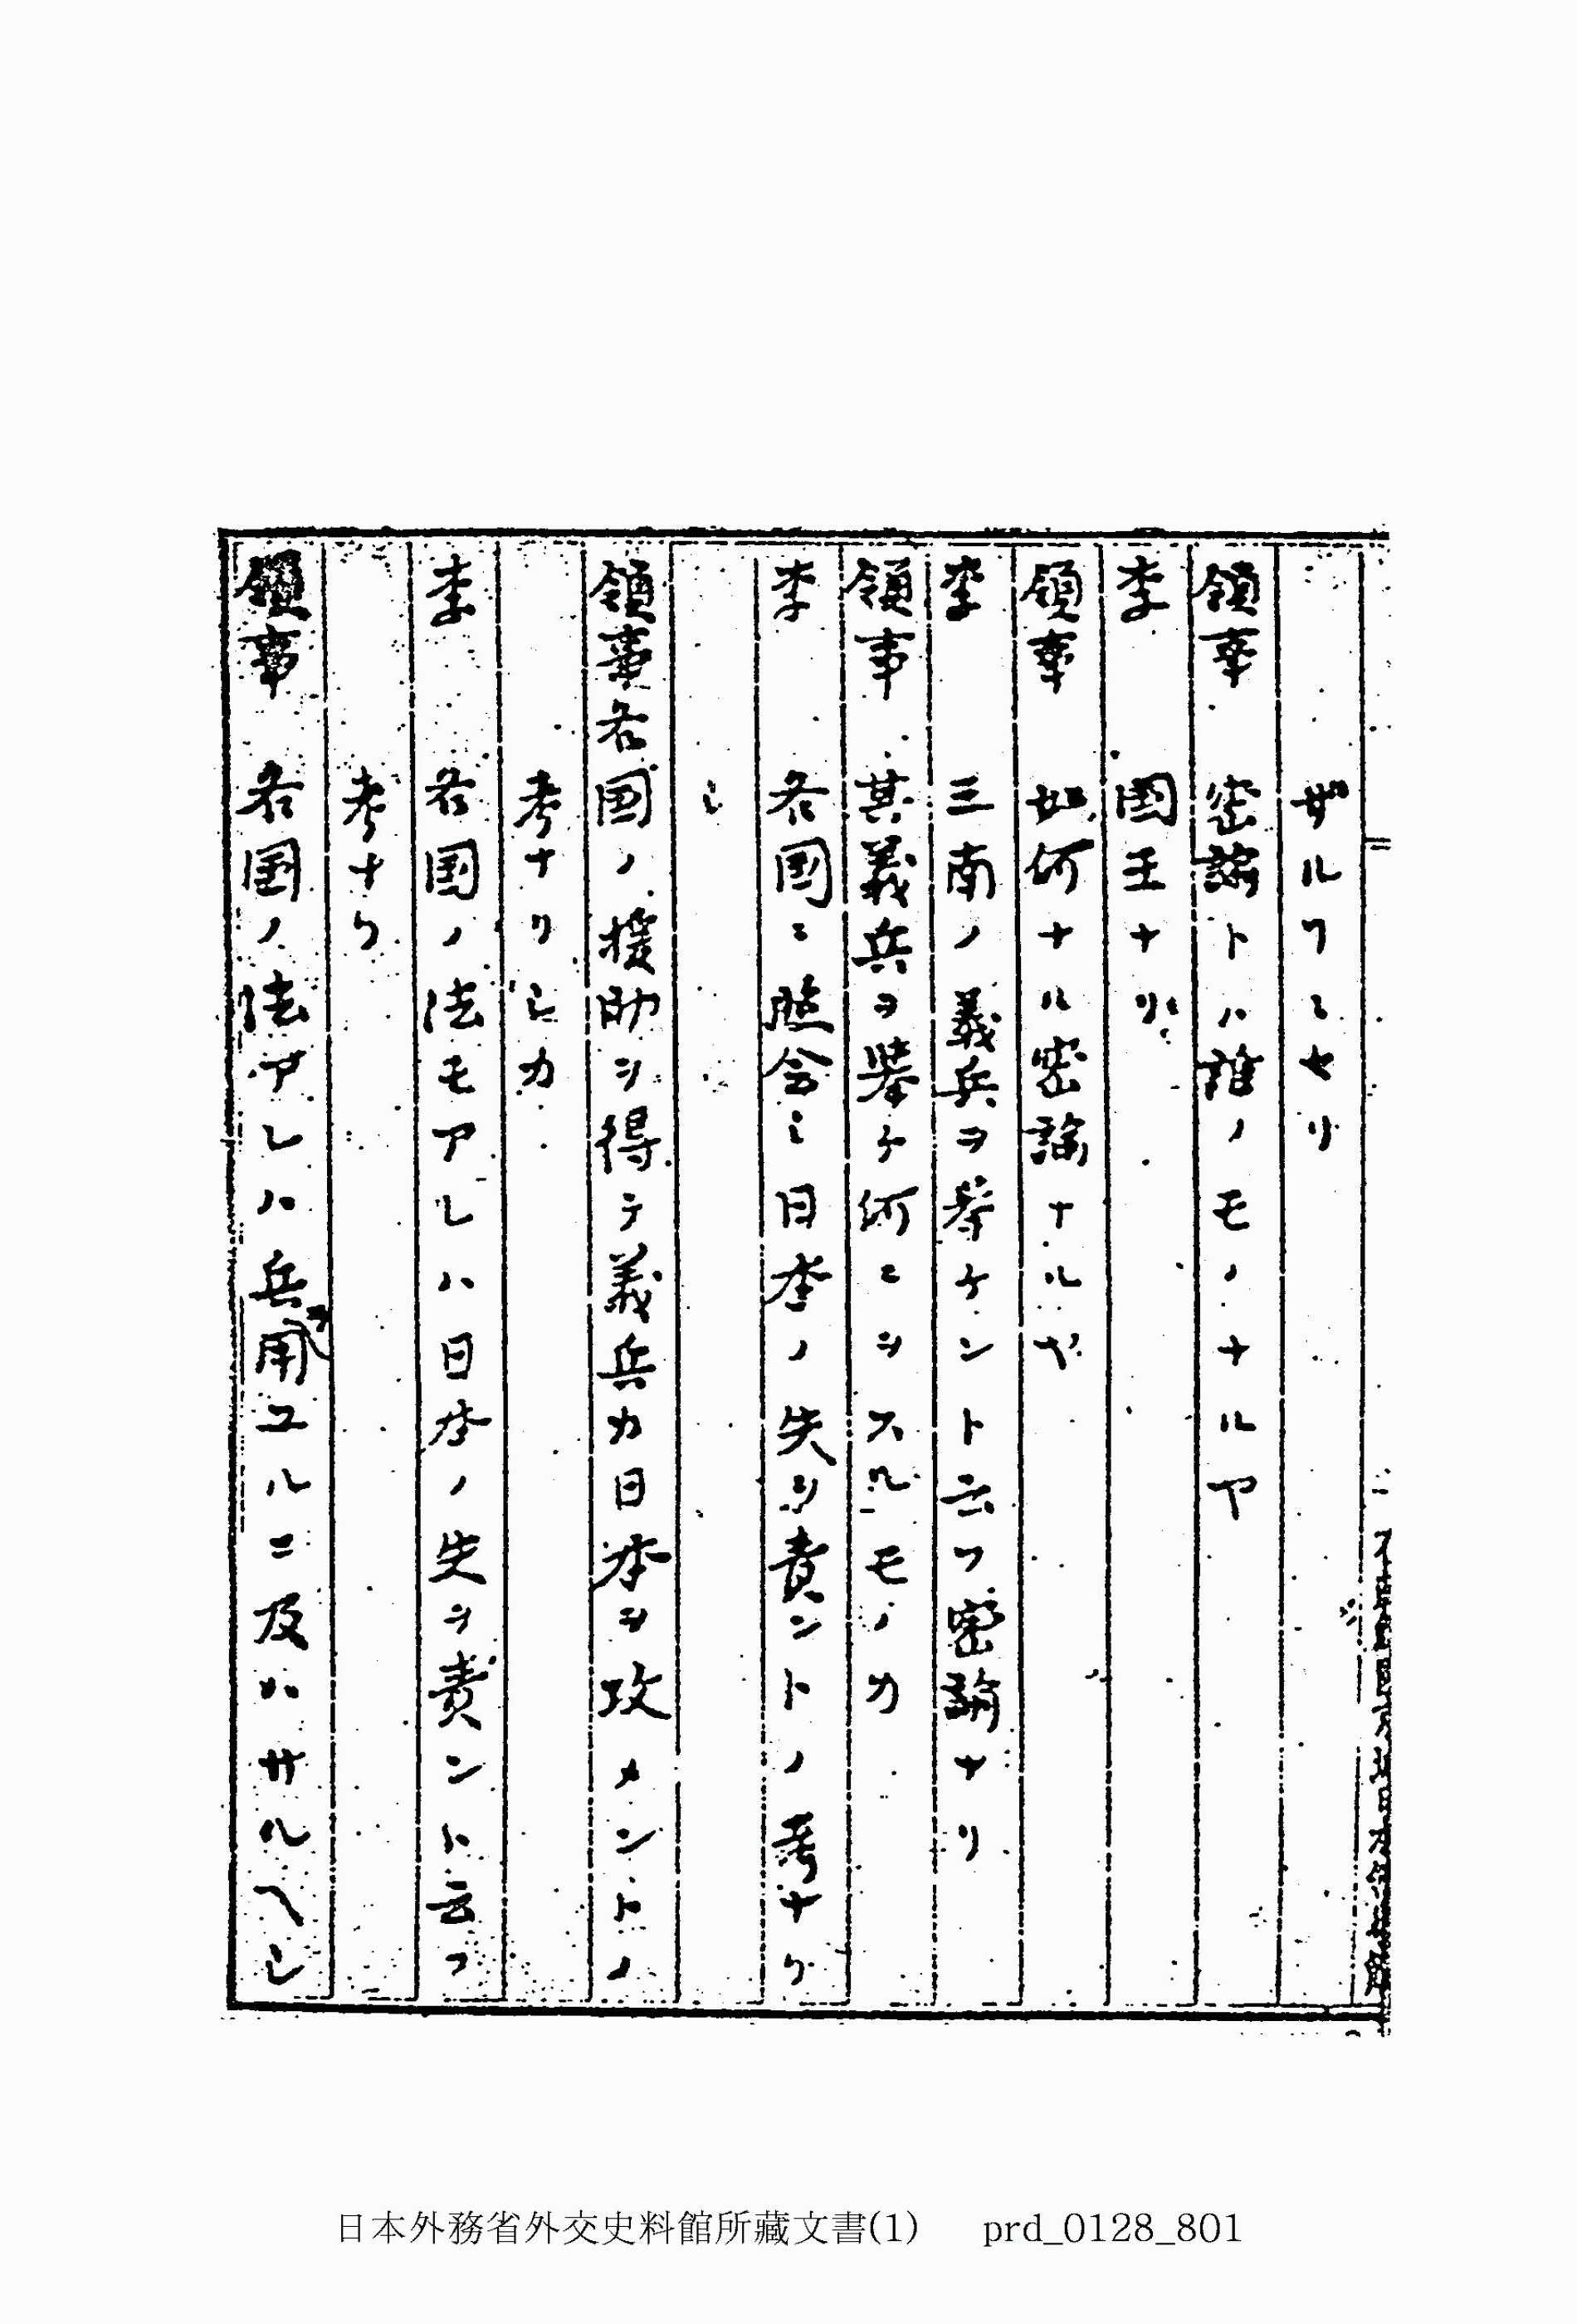 ザルヿニセリ
領事 密諭トハ誰ノモノナルヤ
李 國王ナリ
領事 如何ナル密諭ナルヤ
李 三南ノ義兵ヲ挙ケント云フ密諭ナリ
領事 其義兵ヲ挙ケ何ニヲスルモノカ
李 各国ニ照会シ日本ノ失ヲ責ントノ考ナリ
シ
領事 各国ノ援助ヲ得テ義兵カ日本ヲ攻メントノ
考ナリシカ
李 各国ノ法モアレハ日本ノ失ヲ責ント云フ
考ナリ
領事 各国ノ法アレハ兵ヲ用ユルニ及ハサルヘシ
日本外務省外交史料館所藏文書(1) prd_0128_801